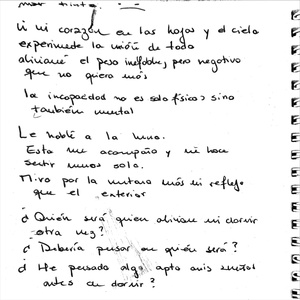 mar tinta.
mi corazón en las hojas y el cielo
experimede la unión de todo
aliviane el peso inefable, pero negativo
que no quiero más
la incapacidad no es solo físico, sino
también mental
Le hablé a la luna.
Esta me acompaño y me hace
sentir menos sola.
Miro por la ventana más mi reflejo
que el exterior
¿Quién será quien aliviane mi dormir
otra vez?
¿Debería pensar en quién será?
¿He pensado algo apto mis sueños
antes de dormir?